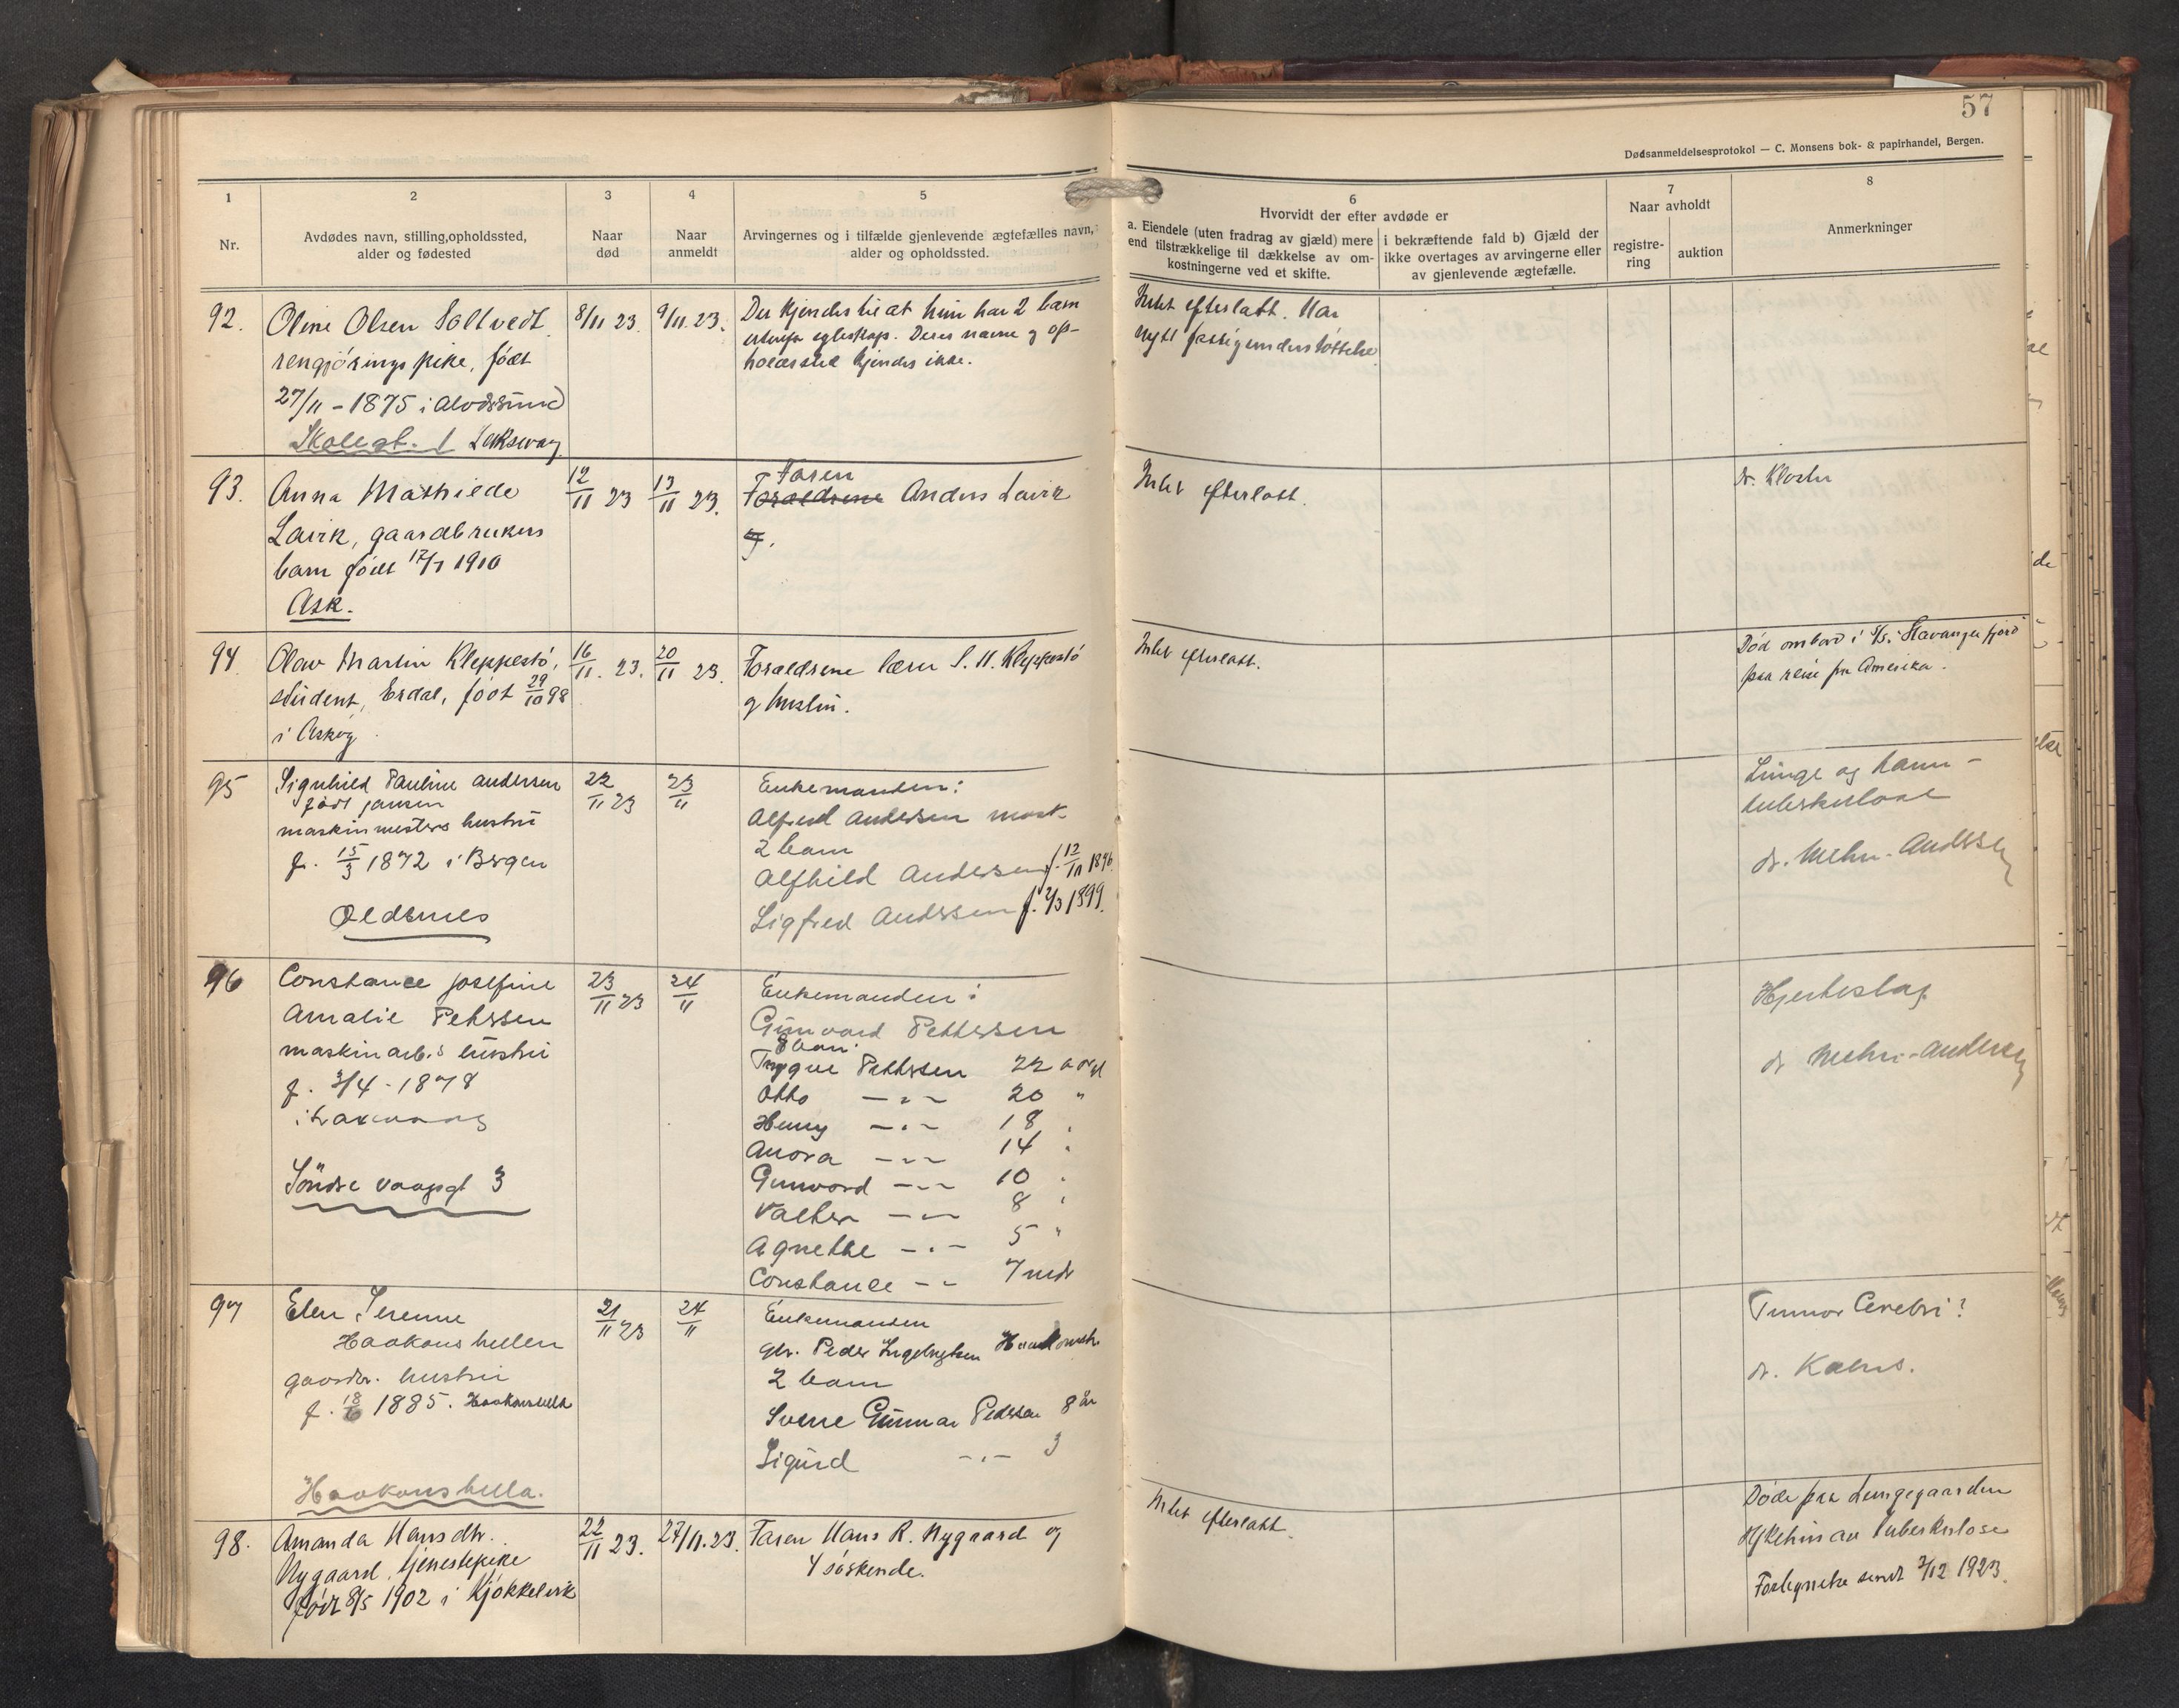 57
Dødsanmeldelsesprotokol — C. Monsens bok- & papirhandel, Bergen.
1
Nr.
2
Avdødes navn, stilling, opholdssted,
alder og fødested
3
Naar
død
4
Naar
anmeldt
5
Arvingernes og i tilfælde gjenlevende ægtefælles navn,
alder og opholdssted.
6
Hvorvidt der efter avdøde er
a. Eiendele (uten fradrag av gjæld) mere
end tilstrækkelige til dækkelse av om-
kostningerne ved et skifte.
i bekræftende fald b) Gjæld der
ikke overtages av arvingerne eller
av gjenlevende ægtefælle.
7
Naar avholdt
registre-
ring
auktion
8
Anmerkninger
92.
Oline Olsen Soltvedt
rengjörings pike, født
27/11 - 1875 i Alvøsund
Skolegt. 1 Laksevaag
8/11 23.
9/11. 23.
Der kjendes til at hun har 2 barn
utenfor egteskap. Deres navne og op-
holdssted kjendes ikke.
Intet efterlatt. Har
nytt fattigunderstøttelse
93.
Anna Mathilde
Lavik, gaardbrukers
barn født 17/7 1910
Ask.
12/11 23
13/11 23.
Faren
Foraldrene Anders Lavik
og.
Intet efterlatt.
dr. Kloster
94
Olav Martin Kleppestö,
student, Erdal, født 29/10 98
i Askøy
16/11. 23.
20/11 23.
Foraldrene lærer S. H. Kleppestö
og hustru.
Intet efterlatt.
Død ombord i S/S. Stavangerfjord
paa reise fra Amerika.
95
Signhild Pauline Andersen
født Jansen
maskinmesters hustru
f. 15/3 1872 i Bergen
Oldernes
22/11 23
23/11
Enkemanden:
Alfred Andersen mask.
2 barn
Alfhild Andersen f. 12/11 1896.
Sigfred Andersen f. 4/3 1899.
Lunge og tarm-
tuberkulose
dr. Mehn-Andersen
96
Constance Josefine
Amalie Pettersen
maskinarb.s hustru
f. 3/4 - 1878
i Laxevaag
Söndre vaagsgt 3
23/11 23
24/11
Enkemanden:
Gunvard Pettersen
8 barn:
Trygve Pettersen 22 aar gl
Otto —"— 20 "
Henry —"— 18 "
Anora —"— 14 "
Gunvord —"— 10 "
Valter —"— 8 "
Agnethe —"— 5 "
Constance —"— 7 mdr
Hjerteslag.
dr Mehn-Andersen
97
Elen Serenne
Haakonshellen
gaardbr. hustru
f. 18/6 1885. Haakonshella
Haakonshella.
21/11 23
24/11
Enkemanden
gbr. Peder Ingebrigtsen Haakonsh.
2 barn
Sverre Gunnar Pedersen 8 år
Sigurd —"— 3
Tumor Cerebri?
dr. Kahrs.
98.
Amanda Hansdtr.
Nygaard, tjenestepike
født 8/5 1902 i Kjøkkelvik
22/11 23.
27/11. 23.
Faren Hans R. Nygaard og
4 söskende.
Intet efterlatt.
Døde paa Lungegaarden
Sykehus av tuberkulose
Fortegnelse sendt 3/12 1923.